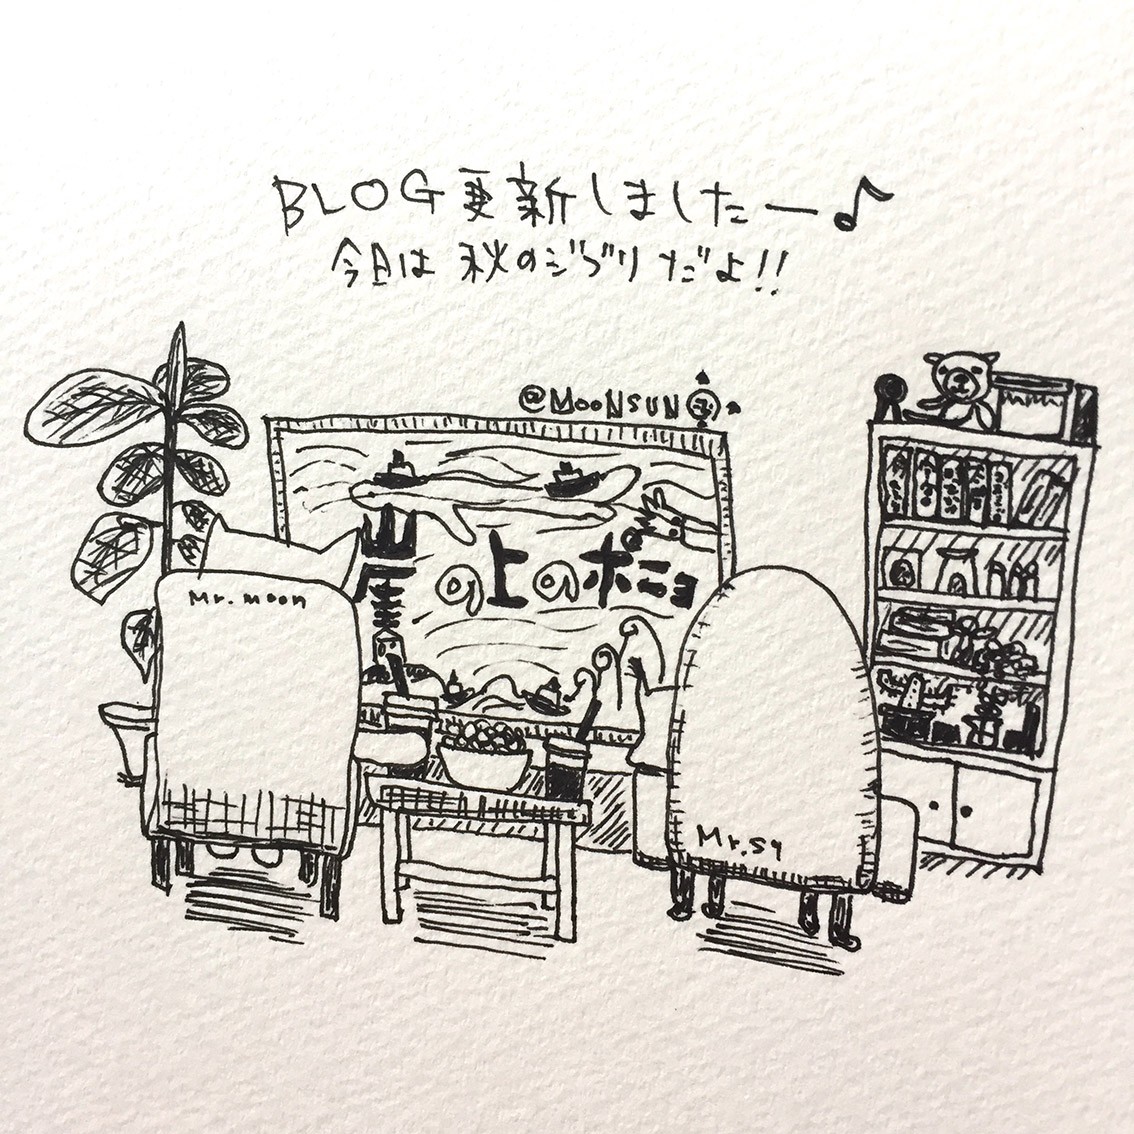 BLOG更新しましたー♪
今日は 秋のジブリだよ!!
@MOONSUN
崖の上のポニョ
Mr. moon
Mr. sy